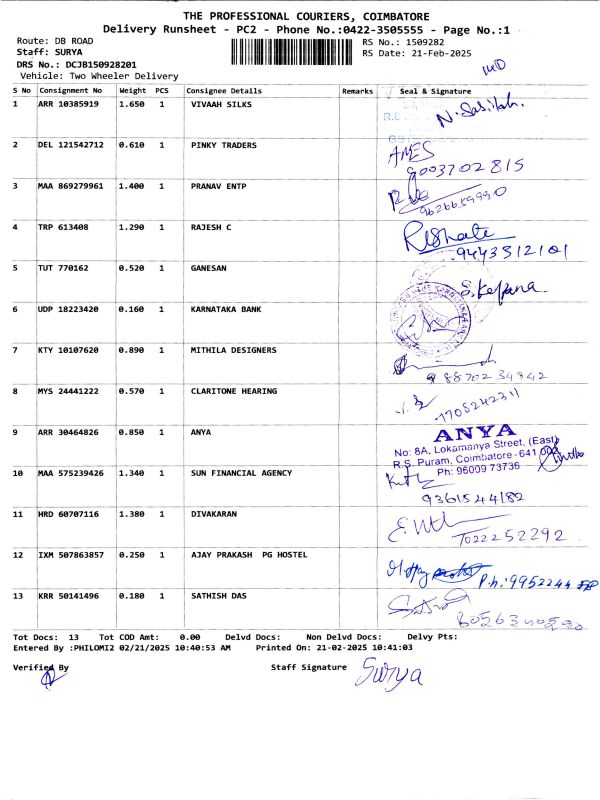 THE PROFESSIONAL COURIERS, COIMBATORE
Delivery Runsheet - PC2 - Phone No.:0422-3505555 - Page No.:1
Route: DB ROAD
Staff: SURYA
DRS No.: DCJB150928201
Vehicle: Two Wheeler Delivery
RS No.: 1509282
RS Date: 21-Feb-2025
S No Consignment No Weight PCS Consignee Details Remarks Seal & Signature
1 ARR 10385919 1.650 1 VIVAAH SILKS
2 DEL 121542712 0.610 1 PINKY TRADERS AMES
9003702815
3 MAA 869279961 1.400 1 PRANAV ENTP
9626659990
4 TRP 613408 1.290 1 RAJESH C
9443312101
5 TUT 770162 0.520 1 GANESAN
6 UDP 18223420 0.160 1 KARNATAKA BANK
7 KTY 10107620 0.890 1 MITHILA DESIGNERS
8870234342
8 MYS 24441222 0.570 1 CLARITONE HEARING
7708242311
9 ARR 30464826 0.850 1 ANYA ANYA
No: 8A, Lokamanya Street, (East)
R.S. Puram, Coimbatore - 641 002
Ph: 96009 73736
10 MAA 575239426 1.340 1 SUN FINANCIAL AGENCY
9361544182
11 HRD 60707116 1.380 1 DIVAKARAN
7022252292
12 IXM 507863857 0.250 1 AJAY PRAKASH PG HOSTEL
Ph: 9952244
13 KRR 50141496 0.180 1 SATHISH DAS
Tot Docs: 13 Tot COD Amt: 0.00 Delvd Docs: Non Delvd Docs: Delvy Pts:
Entered By :PHILOMI2 02/21/2025 10:40:53 AM Printed On: 21-02-2025 10:41:03
Verified By Staff Signature Surya